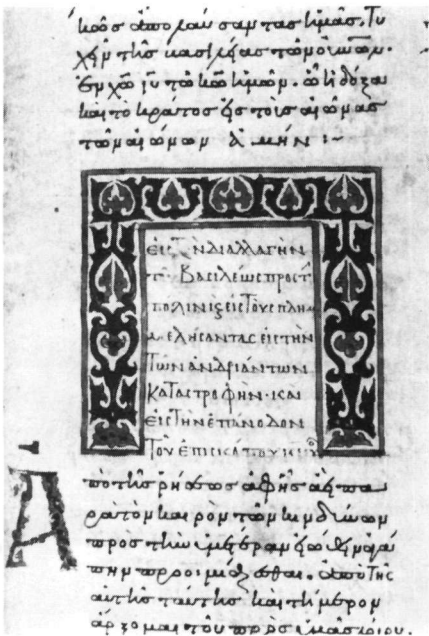 ἀπολαύσαντας ἡμᾶς, τυ
χεῖν τῆς βασιλείας τῶν οὐνῶν.
ἐν χῶ ιῦ τῶ κῶ ἡμῶν. ὧ ἡ δόξα
καὶ τὸ κράτος εἰς τοὺς αἰῶνας
τῶν αἰώνων ἀμήν :~
ΕἰC ΤῊΝ ΔΙΑΛΛΑΓῊΝ
Τ ΒΑCΙΛΕΩC ΠΡΟC Τ
ΠΟΛΙΝ Κ ΕἰC ΤΟῪC ΠΛΗΜ
ΜΕΛΗCΑΝΤΑC ΕἰC ΤῊΝ
ΤΩΝ ἈΝΔΡΙΆΝΤΩΝ
ΚΑΤΑCΤΡΟΦῊΝ· ΚΑΙ
ΕἰC ΤῊΝ ἘΠΆΝΟΔΟΝ
ΤΟΥ ἘΠΙCΚΌΠΟΥ
Ἀπὸ τῆς ῥήσεως ἀφῆς ἀεὶ πα
ρὰ τὸν καιρὸν τῶν κινδύνων
πρὸς τὴν ὑμετέραν εἰώθειν ἀγά
πην προοιμιάζεσθαι. ἀπὸ τῆς
αὐτῆς ταύτης καὶ τήμερον
ἄρξομαι τοῦ πρὸς ὑμᾶς λόγου.